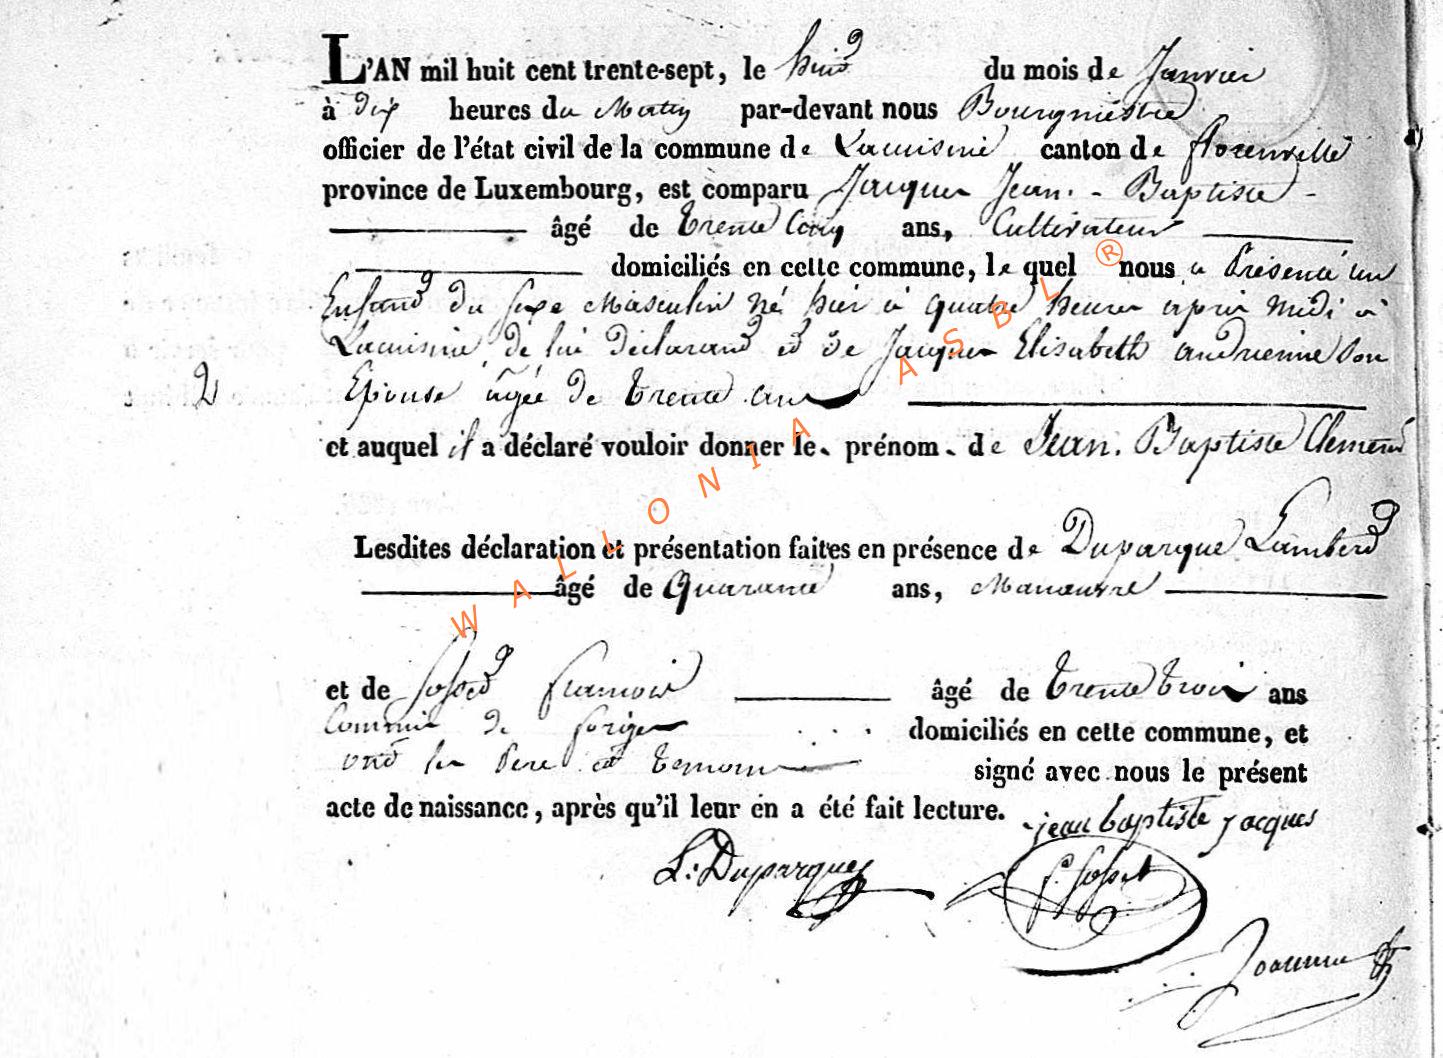 L'AN mil huit cent trente-sept, le huit du mois de Janvier
à dix heures du Matin par-devant nous Bourgmestre
officier de l'état civil de la commune de Lacuisine canton de florenville
province de Luxembourg, est comparu Jacques Jean-Baptiste
âgé de trente Cinq ans, Cultivateur
domiciliés en cette commune, le quel nous a Présenté un
Enfant du sexe Masculin né hier à quatre heures après midi à
Lacuisine, de lui déclarant et de Jacques Elisabeth andrienne Son
2 Epouse âgée de trente ans
et auquel il a déclaré vouloir donner le prénom de Jean Baptiste Clement
Lesdites déclaration et présentation faites en présence de Duparque Lambert
âgé de Quarante ans, Manœuvre
et de Josset francois âgé de trente trois ans
Commis de forges domiciliés en cette commune, et
ont les Pere et temoins signé avec nous le présent
acte de naissance, après qu'il leur en a été fait lecture. jean baptiste jacques
L: Duparque f. Josset
WALLONIA ASBL ®